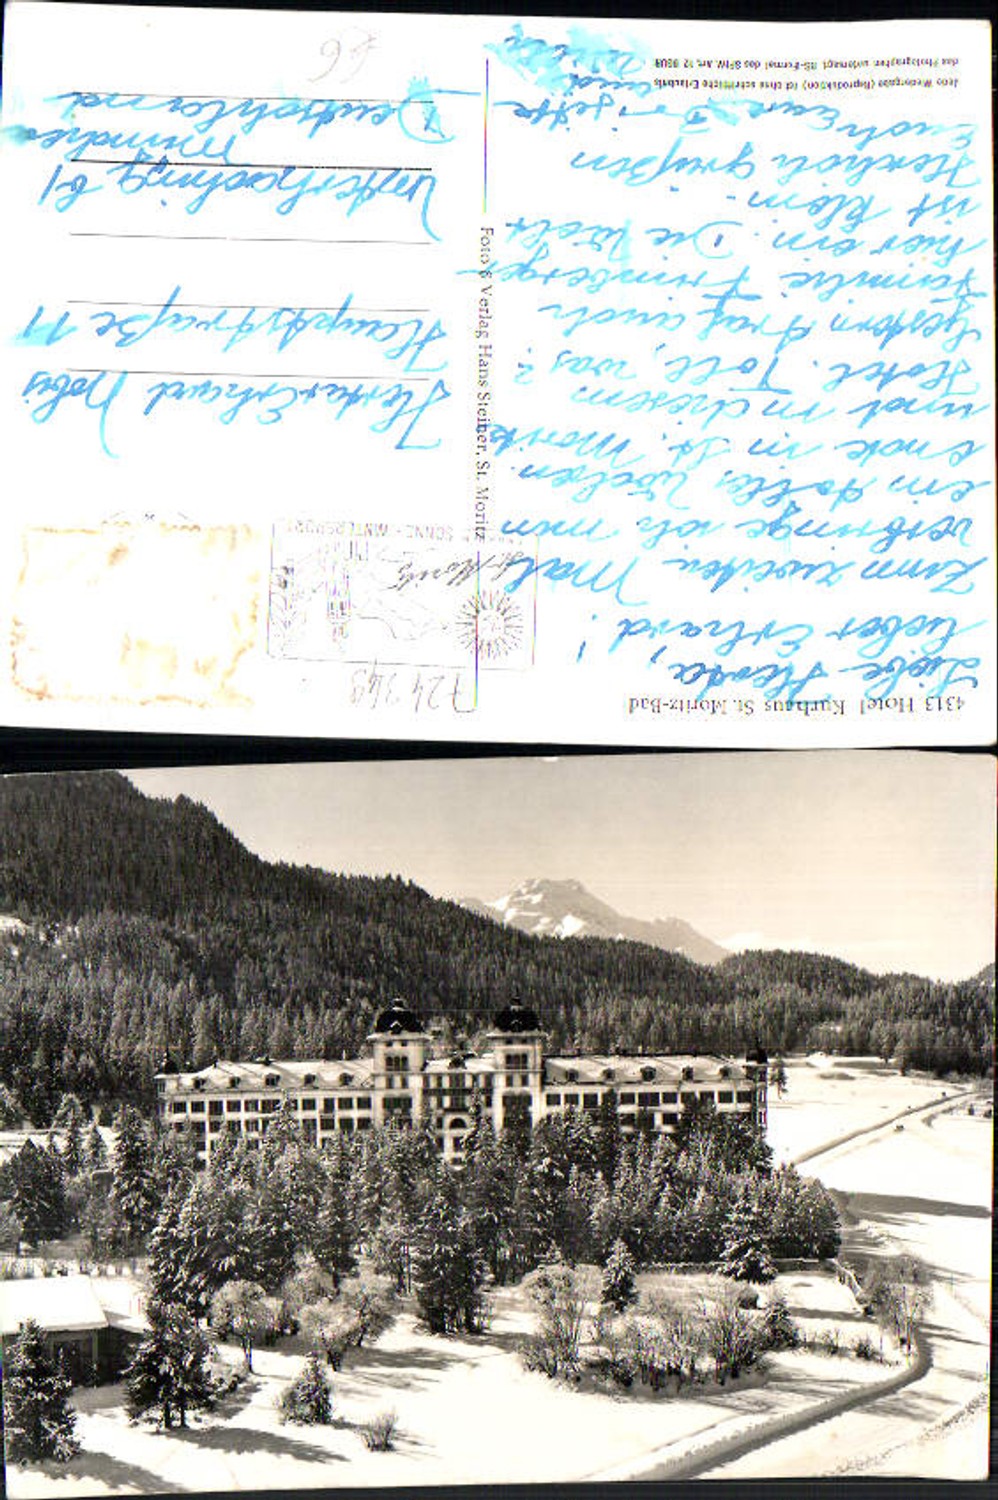 4313 Hotel Kurhaus St. Moritz-Bad
Liebe Herta,
lieber Erhard!
Zum zweiten Mal
verbringe ich nun
ein tolles Wochen-
ende in St. Moritz
und in diesem
Hotel. Toll, was?
Gestern traf auch
Familie Frimberger
hier ein. Die Welt
ist klein.-
Herzlich grüßen
Euch Eure Brigitte
und
Jede Wiedergabe (Reproduktion) ist ohne schriftliche Erlaubnis
des Photographen untersagt. BS-Format des SPhV. Art. 12
Foto & Verlag Hans Steiner, St. Moritz
724349
St. Moritz
SONNE - WINTERSPORT
Hauptstraße 11
Unterhaching b/
München
Deutschland
66